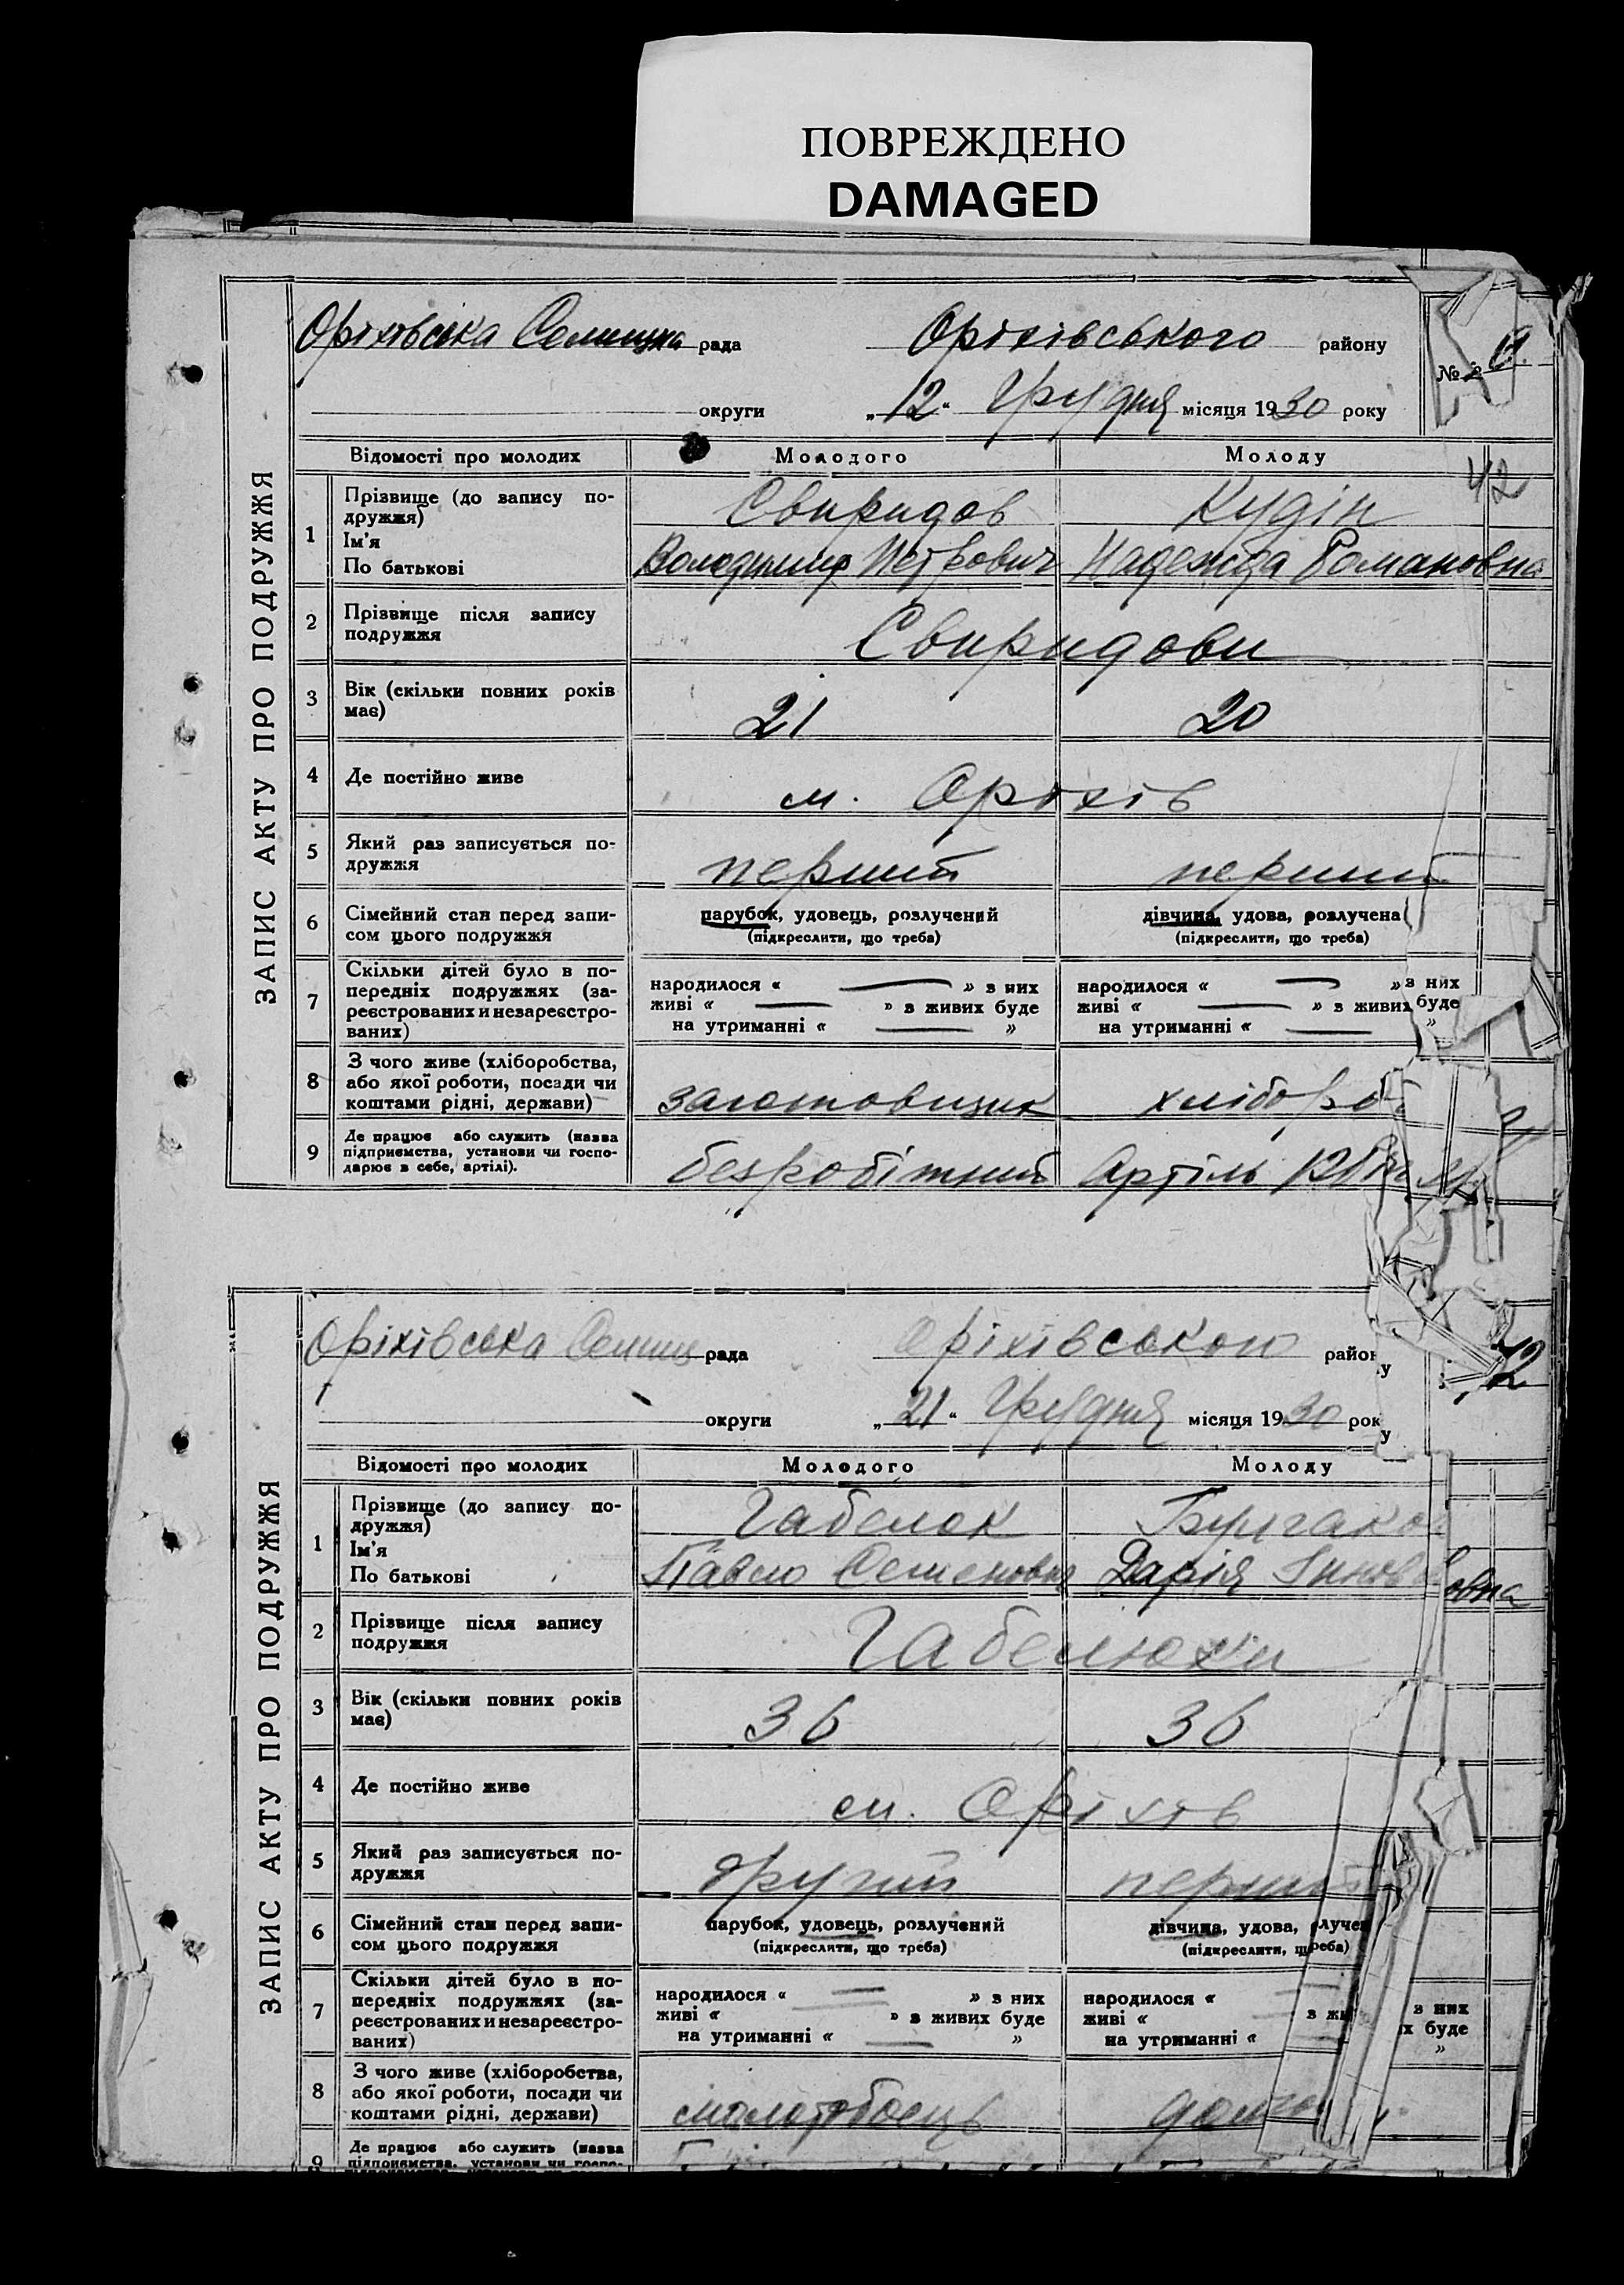 ПОВРЕЖДЕНО
DAMAGED
ЗАПИС АКТУ ПРО ПОДРУЖЖЯ
Оріхівська Селищна рада Оріхівського району
№
округи „12“ Грудня місяця 1930 року
Відомості про молодих Молодого Молоду
42
1 Прізвище (до запису по-
дружжя) Свиридов Кудін
Ім'я
По батькові Володимир Петрович Надежда Романовна
2 Прізвище після запису
подружжя Свиридови
3 Вік (скільки повних років
має) 21 20
4 Де постійно живе м. Оріхів
5 Який раз записується по-
дружжя перший перший
6 Сімейний стан перед запи-
сом цього подружжя
парубок, удовець, розлучений дівчина, удова, розлучена
(підкреслити, що треба) (підкреслити, що треба)
7 Скільки дітей було в по-
передніх подружжях (за-
реєстрованих и незареєстро-
ваних)
народилося « » з них народилося « » з них
живі « » з живих буде живі « » з живих буде
на утриманні « » на утриманні « »
8 З чого живе (хліборобства,
або якої роботи, посади чи
коштами рідні, держави) заготовщик хлібороб
9 Де працює або служить (назва
підприємства, установи чи госпо-
дарює в себе, артілі). безробітний Артіль
ЗАПИС АКТУ ПРО ПОДРУЖЖЯ
Оріхівська Селищ рада Оріхівського району
12
округи „21“ Грудня місяця 1930 року
Відомості про молодих Молодого Молоду
1 Прізвище (до запису по-
дружжя) Габелок Булгако
Ім'я
По батькові Павло Семенович Дарія
2 Прізвище після запису
подружжя Габелюки
3 Вік (скільки повних років
має) 36 36
4 Де постійно живе м. Оріхів
5 Який раз записується по-
дружжя другий перший
6 Сімейний стан перед запи-
сом цього подружжя
парубок, удовець, розлучений дівчина, удова,
(підкреслити, що треба) (підкреслити, що треба)
7 Скільки дітей було в по-
передніх подружжях (за-
реєстрованих и незареєстро-
ваних)
народилося « » з них народилося « з них
живі « » з живих буде живі « буде
на утриманні « » на утриманні « »
8 З чого живе (хліборобства,
або якої роботи, посади чи
коштами рідні, держави) молотобоєць
9 Де працює або служить (назва
підприємства, установи чи госпо-